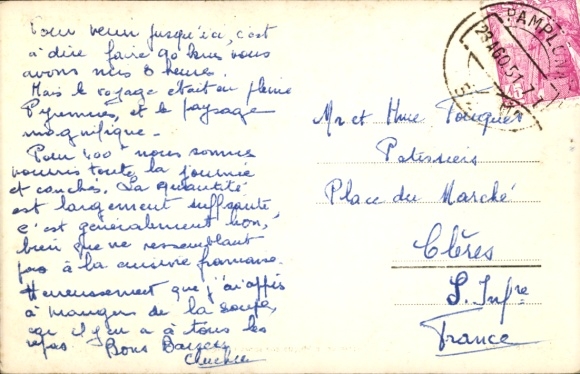 Pour venir jusqu'ici, c'est
à dire faire 90 kms nous
avons mis 8 heures.
Mais le voyage était en pleine
Pyrennées, et le paysage
magnifique -
Pour 400 nous sommes
nourris toute la journée
et couchés. La quantité
est largement suffisante,
c'est généralement bon,
bien que ne ressemblant
pas à la cuisine française.
Heureusement que j'ai appris
à manger de la soupe,
car il y en a à tous les
repas. Bons Baisers
PAMPLONA
29 AGO. 51
Mr et Mme
Patissiers
Place du Marché
Clères
S. Infre
France